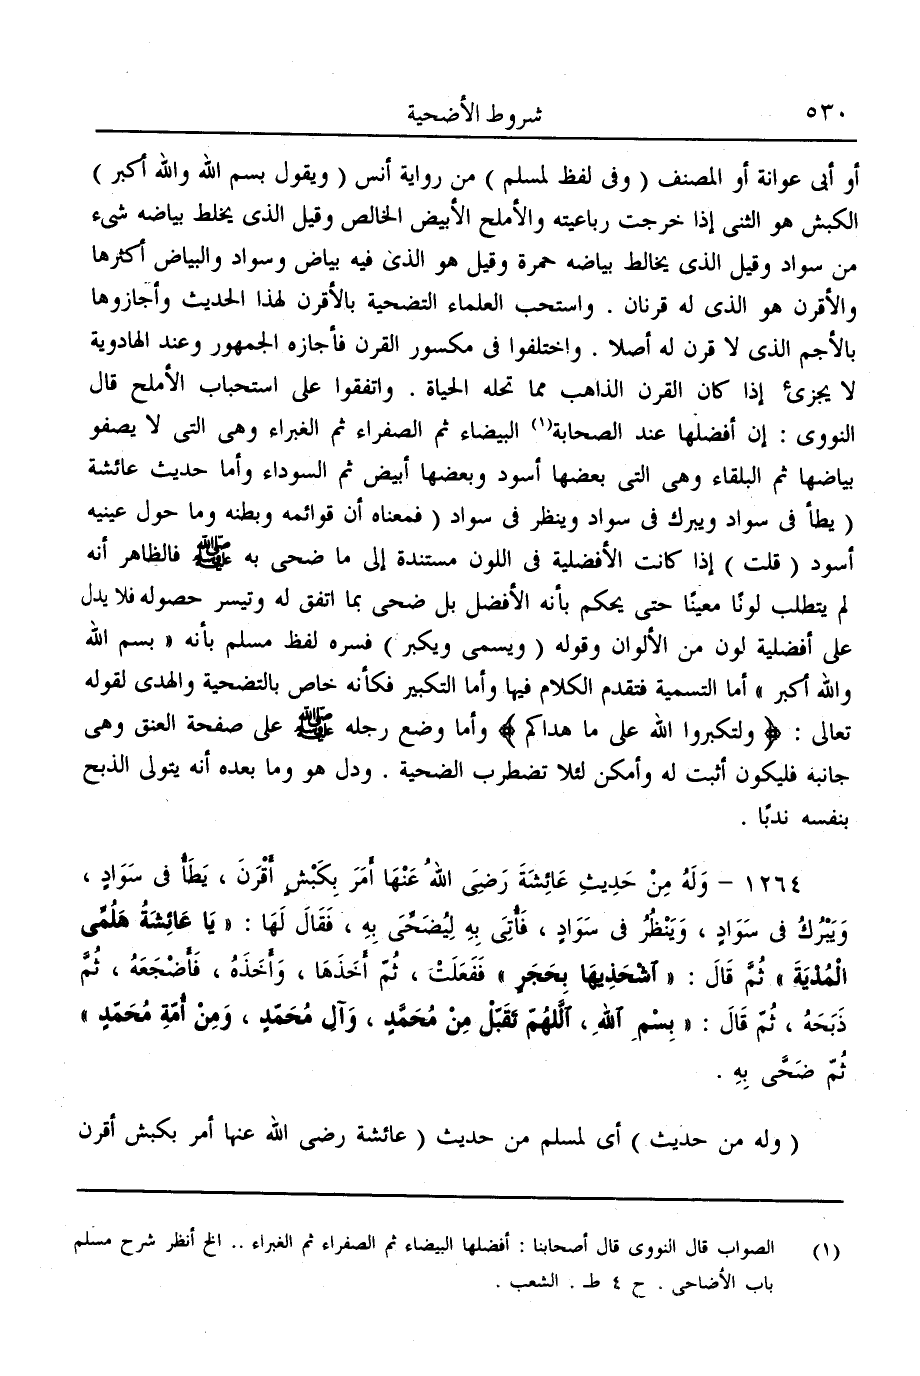 ٥٣٠
شروط الأضحية
أو أبى عوانة أو المصنف ( وفى لفظ لمسلم ) من رواية أنس ( ويقول بسم الله والله أكبر )
الكبش هو الثنى إذا خرجت رباعيته والأملح الأبيض الخالص وقيل الذى يخلط بياضه شىء
من سواد وقيل الذى يخالط بياضه حمرة وقيل هو الذى فيه بياض وسواد والبياض أكثرها
والأقرن هو الذى له قرنان . واستحب العلماء التضحية بالأقرن لهذا الحديث وأجازوها
بالأجم الذى لا قرن له أصلا . واختلفوا فى مكسور القرن فأجازه الجمهور وعند الهادوية
لا يجزىء إذا كان القرن الذاهب مما تحله الحياة . واتفقوا على استحباب الأملح قال
النووى : إن أفضلها عند الصحابة(١) البيضاء ثم الصفراء ثم الغبراء وهى التى لا يصفو
بياضها ثم البلقاء وهى التى بعضها أسود وبعضها أبيض ثم السوداء وأما حديث عائشة
( يطأ فى سواد ويبرك فى سواد وينظر فى سواد ( فمعناه أن قوائمه وبطنه وما حول عينيه
أسود ( قلت ) إذا كانت الأفضلية فى اللون مستندة إلى ما ضحى به ﷺ فالظاهر أنه
لم يتطلب لونًا معينًا حتى يحكم بأنه الأفضل بل ضحى بما اتفق له وتيسر حصوله فلا يدل
على أفضلية لون من الألوان وقوله ( ويسمى ويكبر ) فسره لفظ مسلم بأنه « بسم الله
والله أكبر » أما التسمية فتقدم الكلام فيها وأما التكبير فكأنه خاص بالتضحية والهدى لقوله
تعالى : ﴿ ولتكبروا الله على ما هداكم ﴾ وأما وضع رجله ﷺ على صفحة العنق وهى
جانبه فليكون أثبت له وأمكن لئلا تضطرب الضحية . ودل هو وما بعده أنه يتولى الذبح
بنفسه ندبًا .
١٢٦٤ – وَلَهُ مِنْ حَدِيثِ عَائِشَةَ رَضِىَ اللهُ عَنْهَا أَمَرَ بِكَبْشٍ أَقْرَنَ ، يَطَأُ فى سَوَادٍ ،
وَيَبْرُكُ فى سَوَادٍ ، وَيَنْظُرُ فى سَوَادٍ ، فَأُتِىَ بِهِ لِيُضَحِّىَ بِهِ ، فَقَالَ لَهَا : « يَا عَائِشَةُ هَلُمِّى
الْمُدْيَةَ » ثُمَّ قَالَ : « آشْحَذِيهَا بِحَجَرٍ » فَفَعَلَتْ ، ثُمّ أَخَذَهَا ، وَأَخَذَهُ ، فَأَضْجَعَهُ ، ثُمَّ
ذَبَحَهُ ، ثُمّ قَالَ : « بِسْمِ آللهِ ، آللَّهُمّ تَقَبّلْ مِنْ مُحَمَّدٍ ، وَآلِ مُحَمّدٍ ، وَمِنْ أُمّةِ مُحَمّدٍ »
ثُمّ ضَحَّى بِهِ .
( وله من حديث ) أى لمسلم من حديث ( عائشة رضى الله عنها أمر بكبش أقرن
(١) الصواب قال النووى قال أصحابنا : أفضلها البيضاء ثم الصفراء ثم الغبراء .. الخ أنظر شرح مسلم
باب الأضاحى . ح ٤ ط . الشعب .